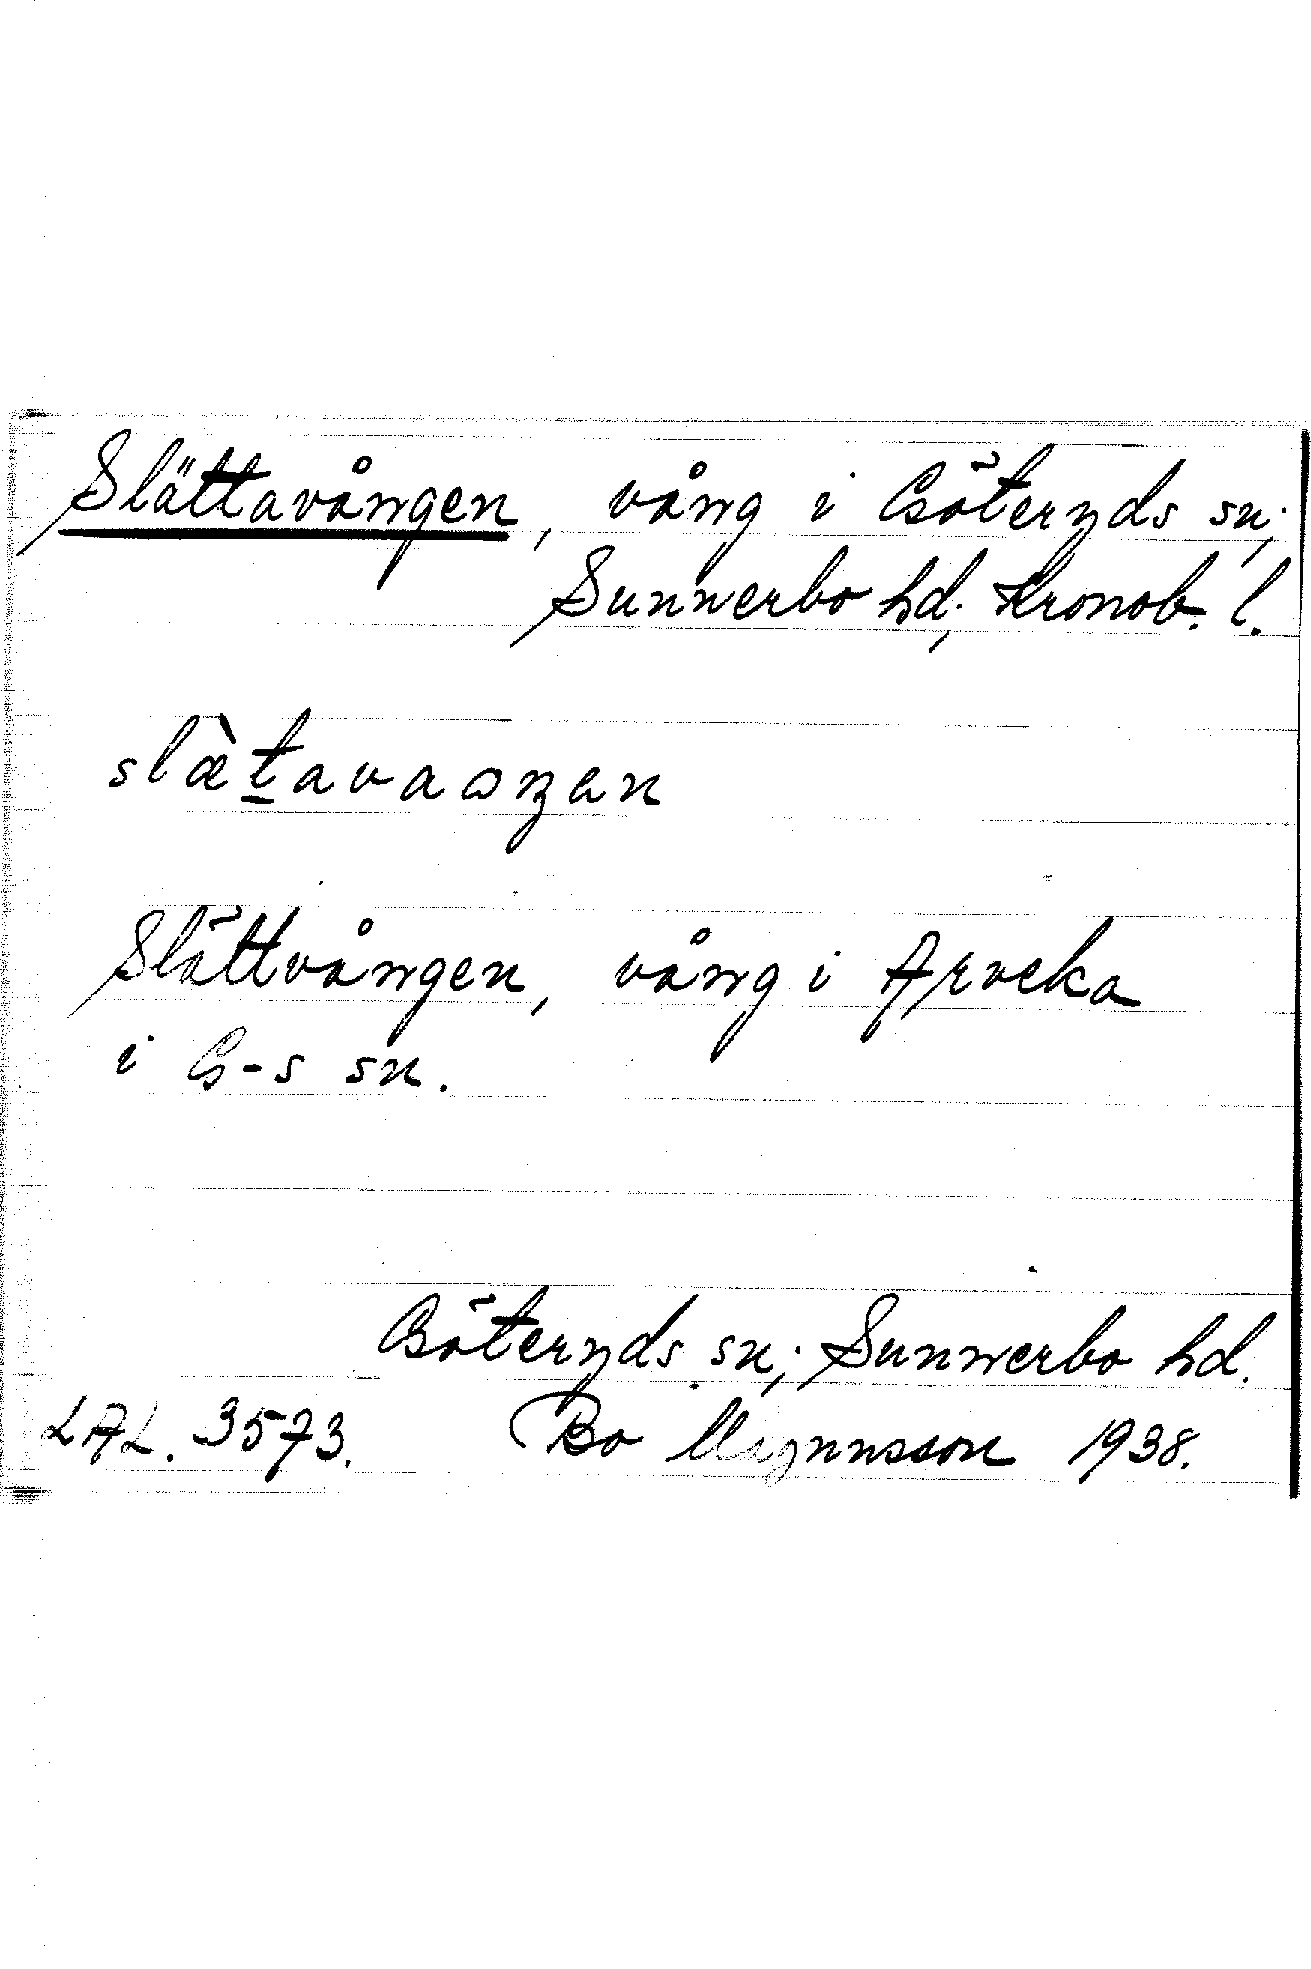 Slättavången, vång i Göteryds sn;
Sunnerbo hd; Kronob. l.
slæ̀t̠avaωŋen
Slättvången, vång i Arveka
i G-s sn.
Göteryds sn; Sunnerbo hd.
LAL. 3573. Bo Magnusson 1938.